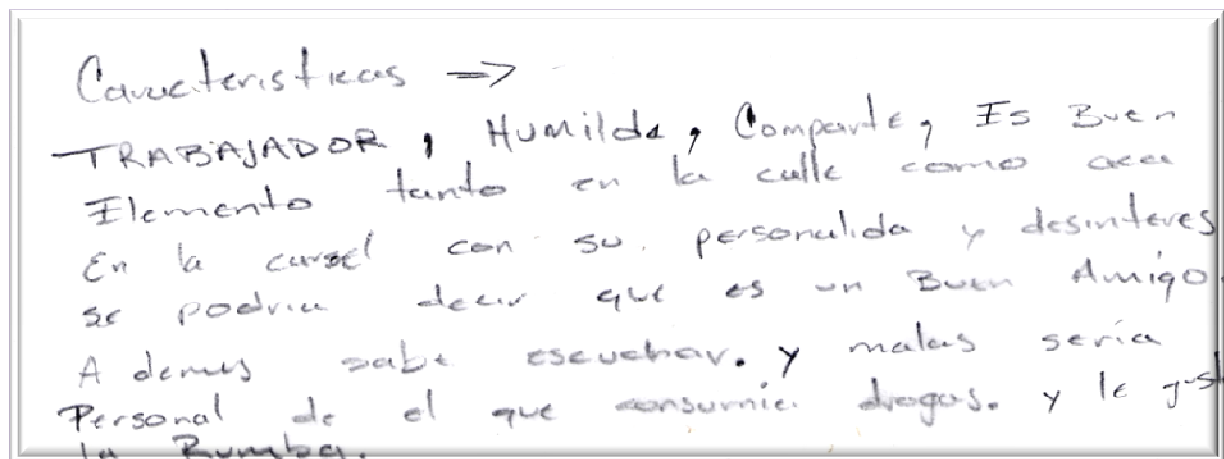 Caracteristicas →
TRABAJADOR, Humilde, Comparte, Es Buen
Elemento tanto en la calle como aca
En la carsel con su personalida y desinteres
se podria decir que es un Buen Amigo.
A demas sabe escuchar. y malas sería
Personal de el que consumie. drogas. y le gust
la Rumba.